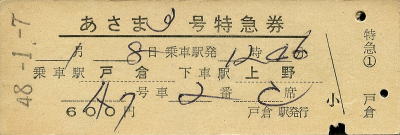 48-1.-7
あさま 9 号特急券
1月 8日 乗車駅発 12時46分
乗車駅 戸倉 下車駅 上野
7号車 2番 C席
600円 戸倉駅発行
特急①
小
戸倉